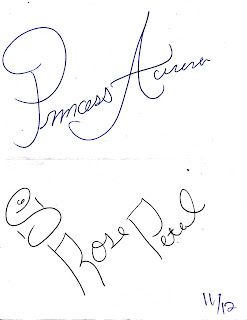 Princess Aurora
Rose Petal
11/12